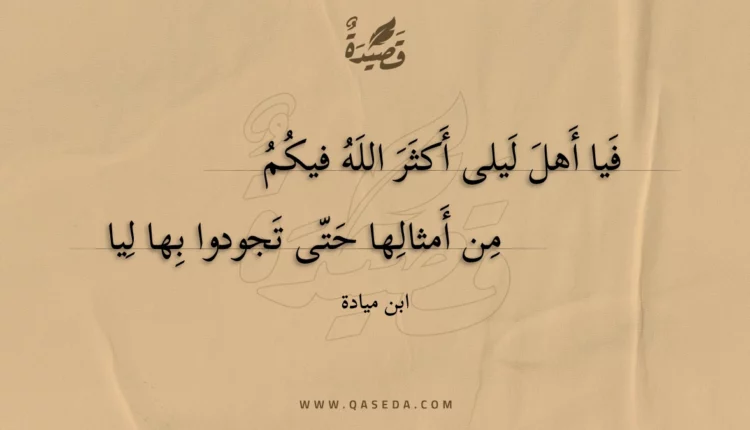 قَصِيدَةٌ
فَيا أَهلَ لَيلى أَكثَرَ اللَهُ فيكُمُ
مِن أَمثالِها حَتّى تَجودوا بِها لِيا
ابن ميادة
WWW.QASEDA.COM